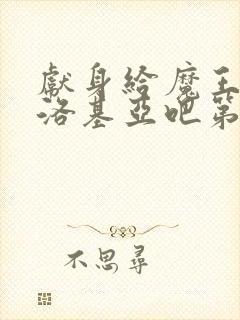 獻身給魔王
洛基亞吧第
不思尋